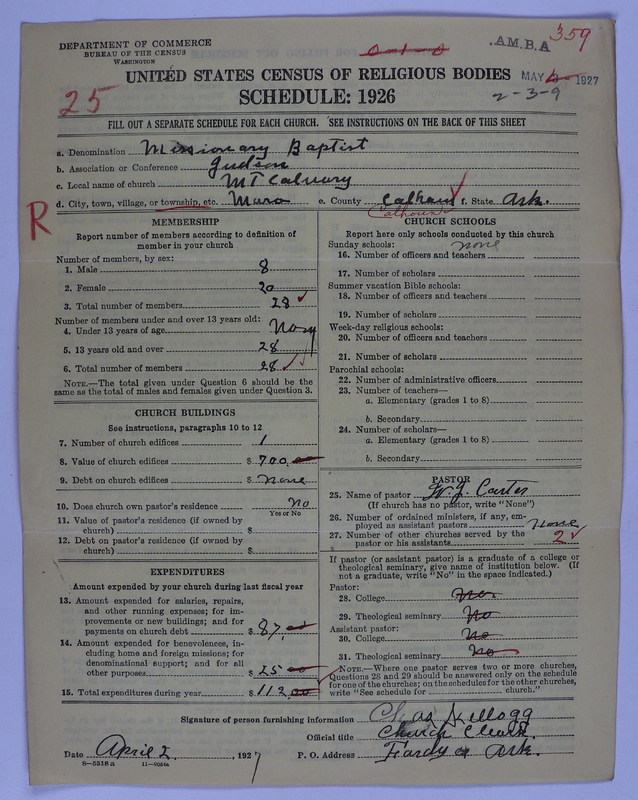 DEPARTMENT OF COMMERCE
BUREAU OF THE CENSUS
WASHINGTON
0-1-0
.A.M.B.A 359
UNITED STATES CENSUS OF RELIGIOUS BODIES
MAY 1927
25
SCHEDULE: 1926
2-3-9
FILL OUT A SEPARATE SCHEDULE FOR EACH CHURCH. SEE INSTRUCTIONS ON THE BACK OF THIS SHEET
a. Denomination Missionary Baptist
b. Association or Conference Judson
c. Local name of church MT Calvary
d. City, town, village, or township, etc. Moro e. County Calhoun f. State Ark.
Calhoun
R
MEMBERSHIP
Report number of members according to definition of
member in your church
Number of members, by sex:
1. Male 8
2. Female 20
3. Total number of members 28
Number of members under and over 13 years old:
4. Under 13 years of age
5. 13 years old and over 28
6. Total number of members 28
NOTE.—The total given under Question 6 should be the
same as the total of males and females given under Question 3.
CHURCH BUILDINGS
See instructions, paragraphs 10 to 12
7. Number of church edifices 1
8. Value of church edifices $ 700.00
9. Debt on church edifices $ none
10. Does church own pastor's residence no
Yes or No
11. Value of pastor's residence (if owned by
church) $
12. Debt on pastor's residence (if owned by
church) $
EXPENDITURES
Amount expended by your church during last fiscal year
13. Amount expended for salaries, repairs,
and other running expenses; for im-
provements or new buildings; and for
payments on church debt $ 87.00
14. Amount expended for benevolences, in-
cluding home and foreign missions; for
denominational support; and for all
other purposes $ 25 00
15. Total expenditures during year $ 112.00
CHURCH SCHOOLS
Report here only schools conducted by this church
Sunday schools: none
16. Number of officers and teachers
17. Number of scholars
Summer vacation Bible schools:
18. Number of officers and teachers
19. Number of scholars
Week-day religious schools:
20. Number of officers and teachers
21. Number of scholars
Parochial schools:
22. Number of administrative officers
23. Number of teachers—
a. Elementary (grades 1 to 8)
b. Secondary
24. Number of scholars—
a. Elementary (grades 1 to 8)
b. Secondary
PASTOR
25. Name of pastor W.J. Carter
(If church has no pastor, write "None")
26. Number of ordained ministers, if any, em-
ployed as assistant pastors none
27. Number of other churches served by the
pastor or his assistants 2
If pastor (or assistant pastor) is a graduate of a college or
theological seminary, give name of institution below. (If
not a graduate, write "No" in the space indicated.)
Pastor:
28. College No.
29. Theological seminary No
Assistant pastor:
30. College No
31. Theological seminary No
NOTE.—Where one pastor serves two or more churches,
Questions 28 and 29 should be answered only on the schedule
for one of the churches; on the schedules for the other churches,
write "See schedule for church."
Signature of person furnishing information Chas Kellogg
Official title Church Clerk.
Date April 2, 1927 P. O. Address Ark.
8-5518 a 11-9024a